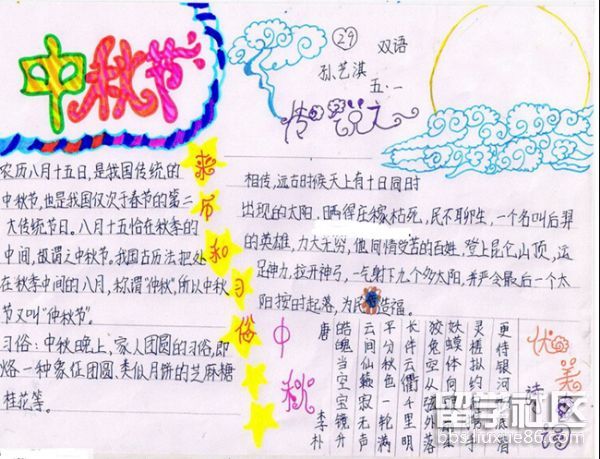 中秋节
29
双语
孙艺淇
五·一
传说之
来历和习俗
农历八月十五日,是我国传统的
中秋节,也是我国仅次于春节的第二
大传统节日。八月十五恰在秋季的
中间,故谓之中秋节。我国古历法把处
在秋季中间的八月,称谓"仲秋",所以中秋
节又叫"仲秋节"。
习俗:中秋晚上,家人团圆的习俗,即
烙一种象征团圆、类似月饼的芝麻糖
桂花等。
相传,远古时候天上有十日同时
出现的太阳,晒得庄稼枯死,民不聊生,一个名叫后羿
的英雄,力大无穷,他同情受苦的百姓,登上昆仑山顶,运
足神力,拉开神弓,一气射下九个多太阳,并严令最后一个太
阳按时起落,为民造福。
优美诗词
更侍银河
灵槎拟约
妖蟆体向
狡兔空从弦外落
长件云衢千里明
平分秋色一轮满
云间仙籁寂无声
皓魄当空宝镜升
唐 李朴
中秋
留学社区
bbs.liuxue86.com